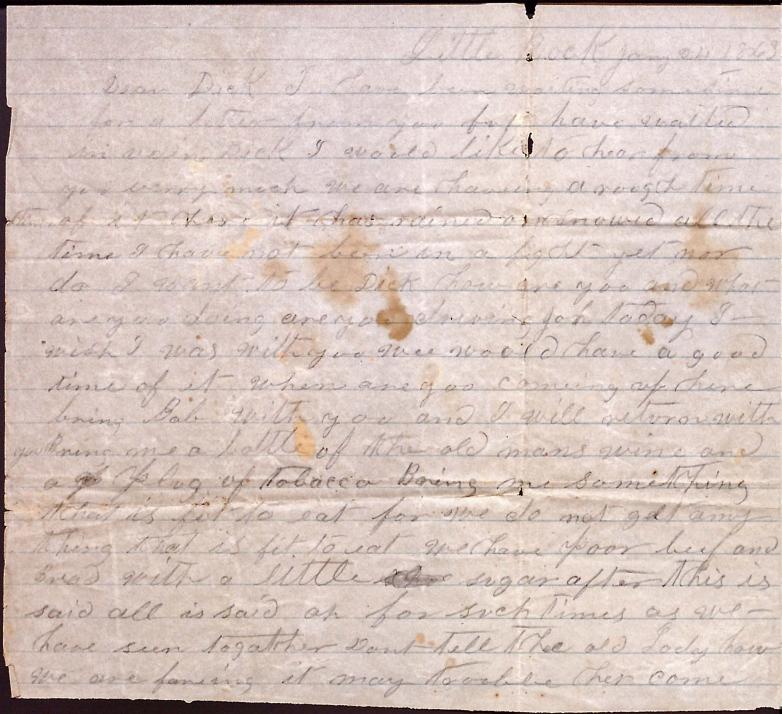 Little Rock Jany 1863
Dear Dick I have been waiting sometime
for a letter from you but have waited
in vain Dick I would like to hear from
you verry much we are haveing a rough time
of it here it has rained or snowed all the
time I have not been in a fight yet nor
do I want to be Dick how are you and what
are you doing are you today I
wish I was with you wee woold have a good
time of it when are you comeing up here
bring Bab with you and I will return with
you Bring me a bottle of the old mans wine and
a plug of tobacco Bring me something
that is fit to eat for we do not get any
thing that is fit to eat we have poor beef and
bread with a little sugar after this is
said all is said oh for such times as we
have seen together Dont tell the old Lady how
we are fareing it may trouble her come